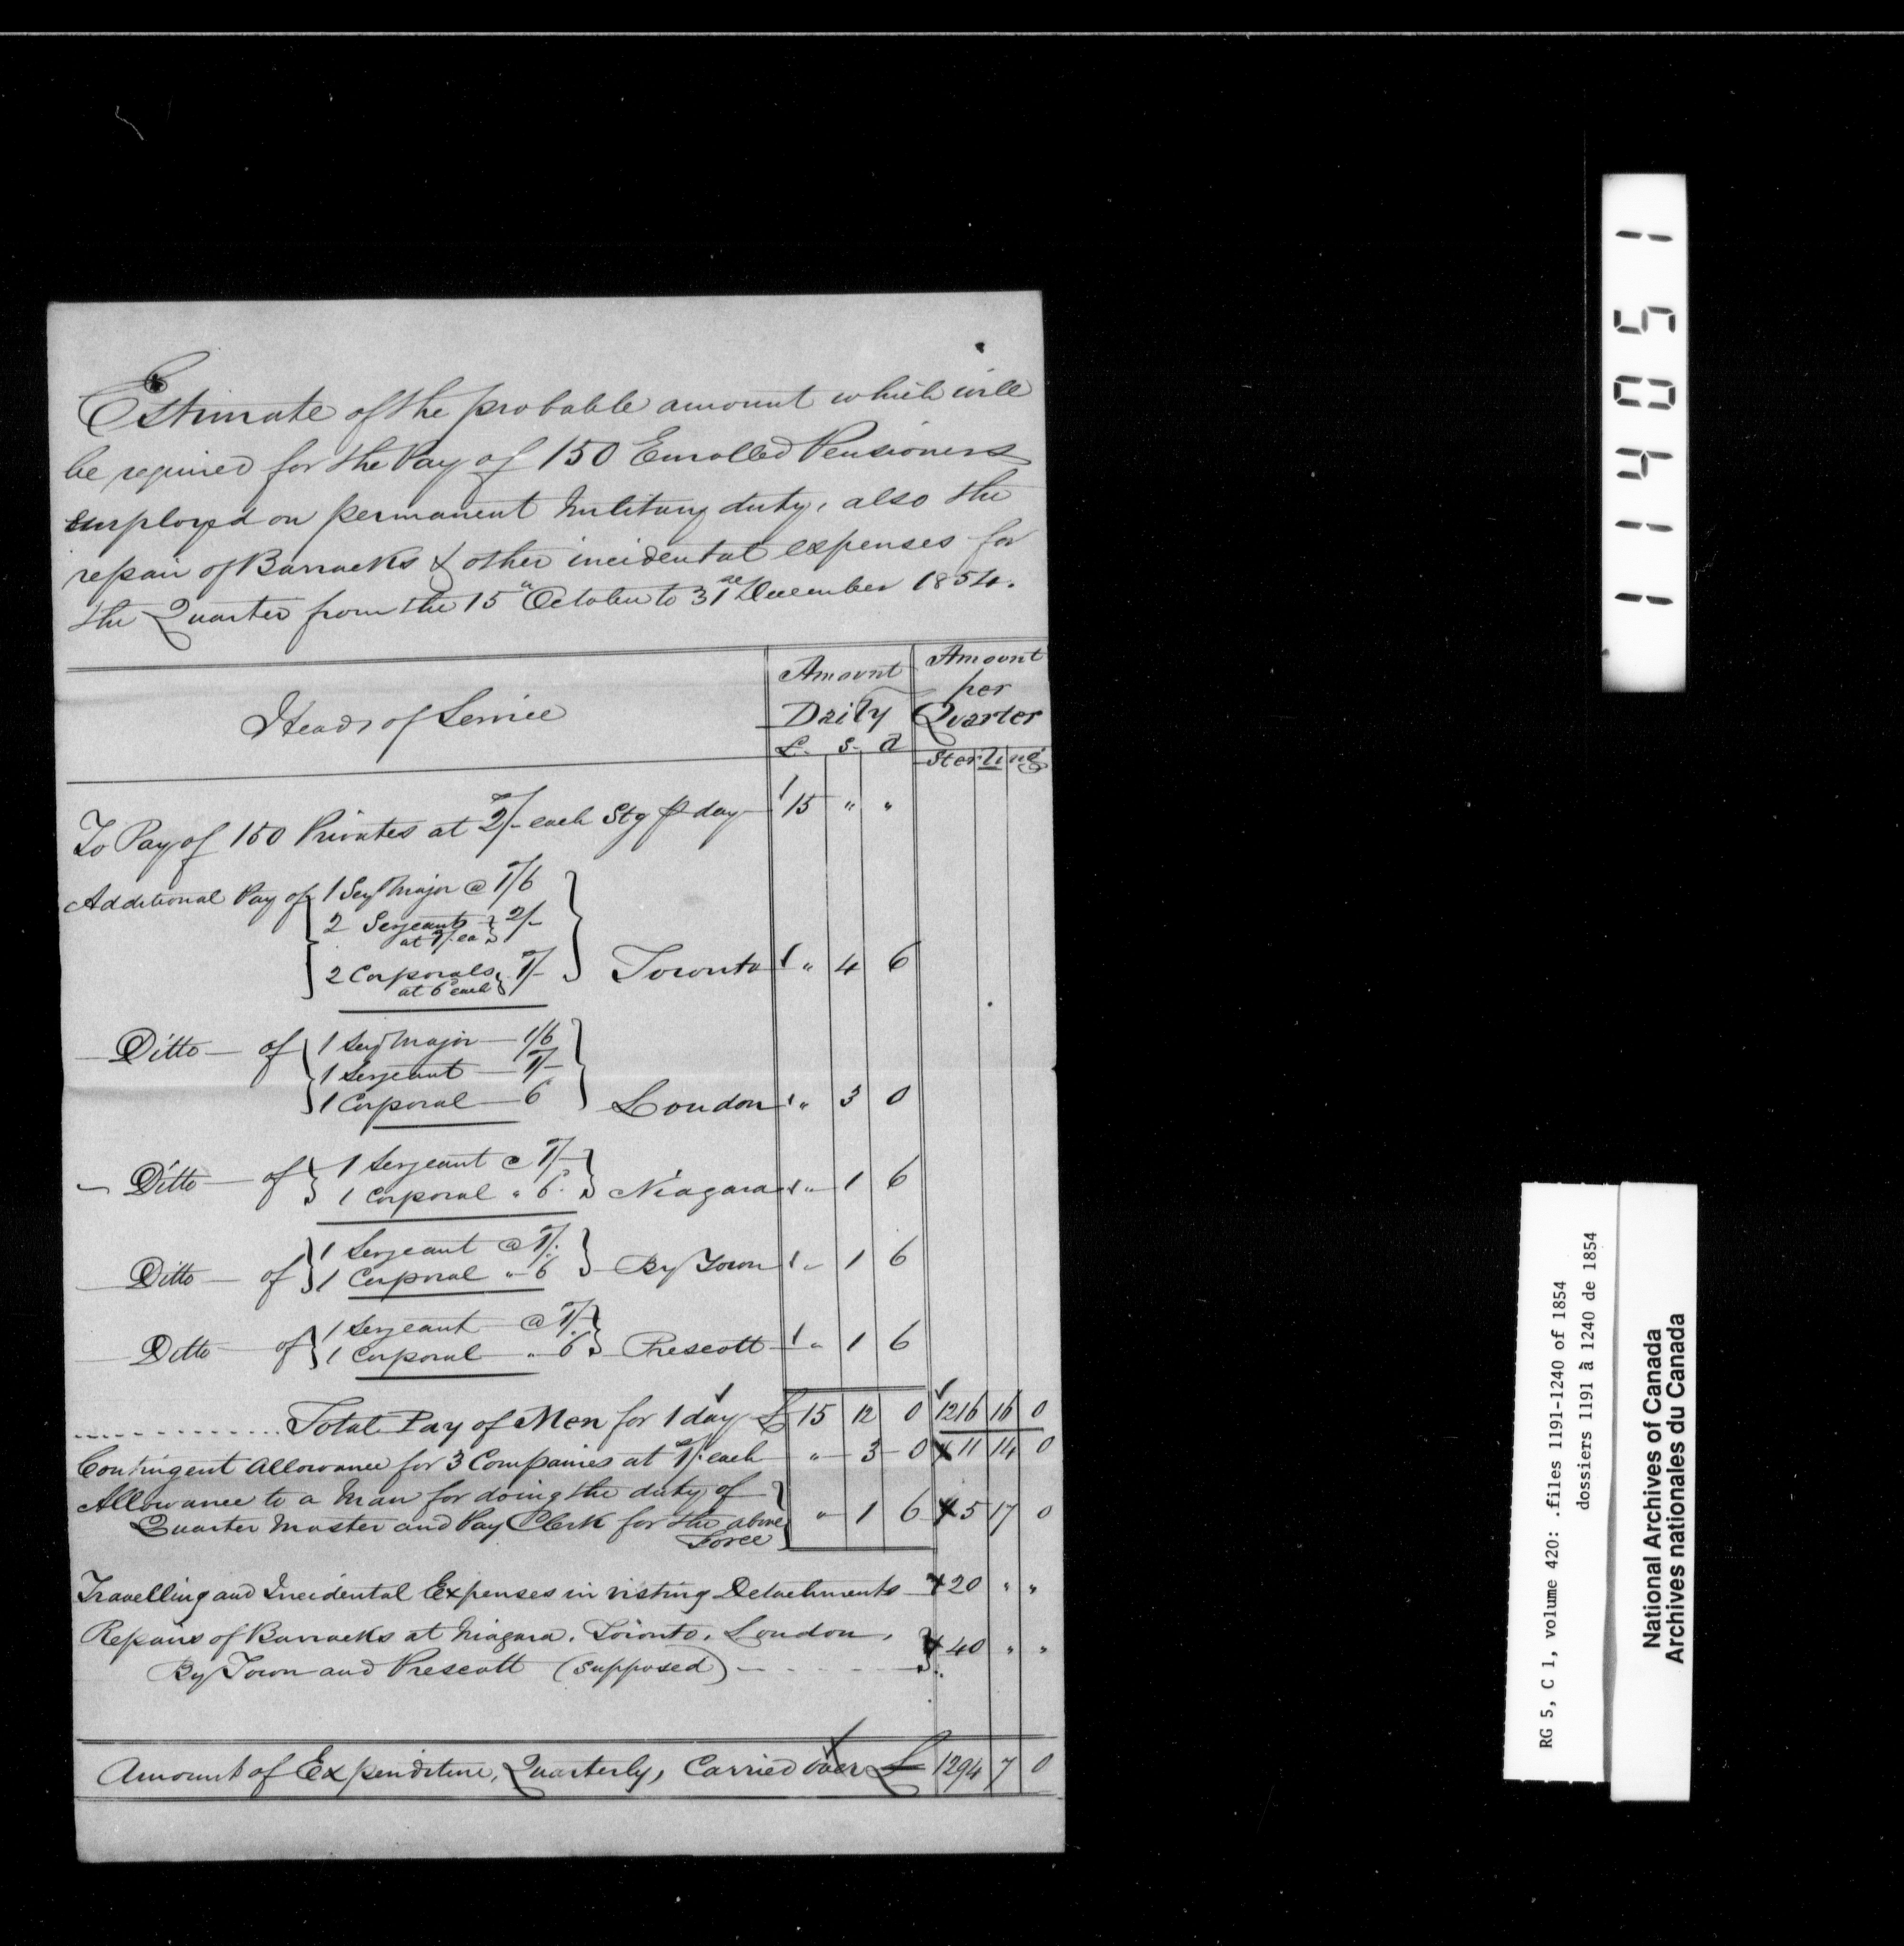 Estimate of the probable amount which will
be required for the Pay of 150 Enrolled Pensioners
employed on permanent Military duty, also the
repair of Barracks & other incidental expenses for
the Quarter from the 15" October to 31st December 1854.
Heads of Service
Amount Daily
£. s. d
Amount per Quarter
Sterling
To Pay of 150 Privates at 2/- each Stg ⅌ day 15 " "
Additional Pay of 1 Sergt Major @ 1/6
2 Sergeants at 1/. ea 2/-
2 Corporals at 6 each 1/-
Toronto " 4 6
Ditto of 1 Sergt Major 1/6
1 Sergeant 1/-
1 Corporal 6
London " 3 0
Ditto of 1 Sergeant @ 1/-
1 Corporal " 6
Niagara " 1 6
Ditto of 1 Sergeant @ 1/.
1 Corporal " 6
By Town " 1 6
Ditto of 1 Sergeant @ 1/.
1 Corporal " 6
Prescott " 1 6
Total Pay of Men for 1 day £ 15 12 0 1216 16 0
Contingent Allowance for 3 Companies at 1/. each " 3 0 11 14 0
Allowance to a Man for doing the duty of
Quarter Master and Pay Clerk for the above Force " 1 6 5 17 0
Travelling and Incidental Expenses in visting Detachments 20 " "
Repairs of Barracks at Niagara, Toronto, London,
By Town and Prescott (supposed) 40 " "
Amount of Expenditure, Quarterly, Carried over £ 1294 7 0
114051
RG 5, C 1, volume 420: .files 1191-1240 of 1854
dossiers 1191 à 1240 de 1854
National Archives of Canada
Archives nationales du Canada